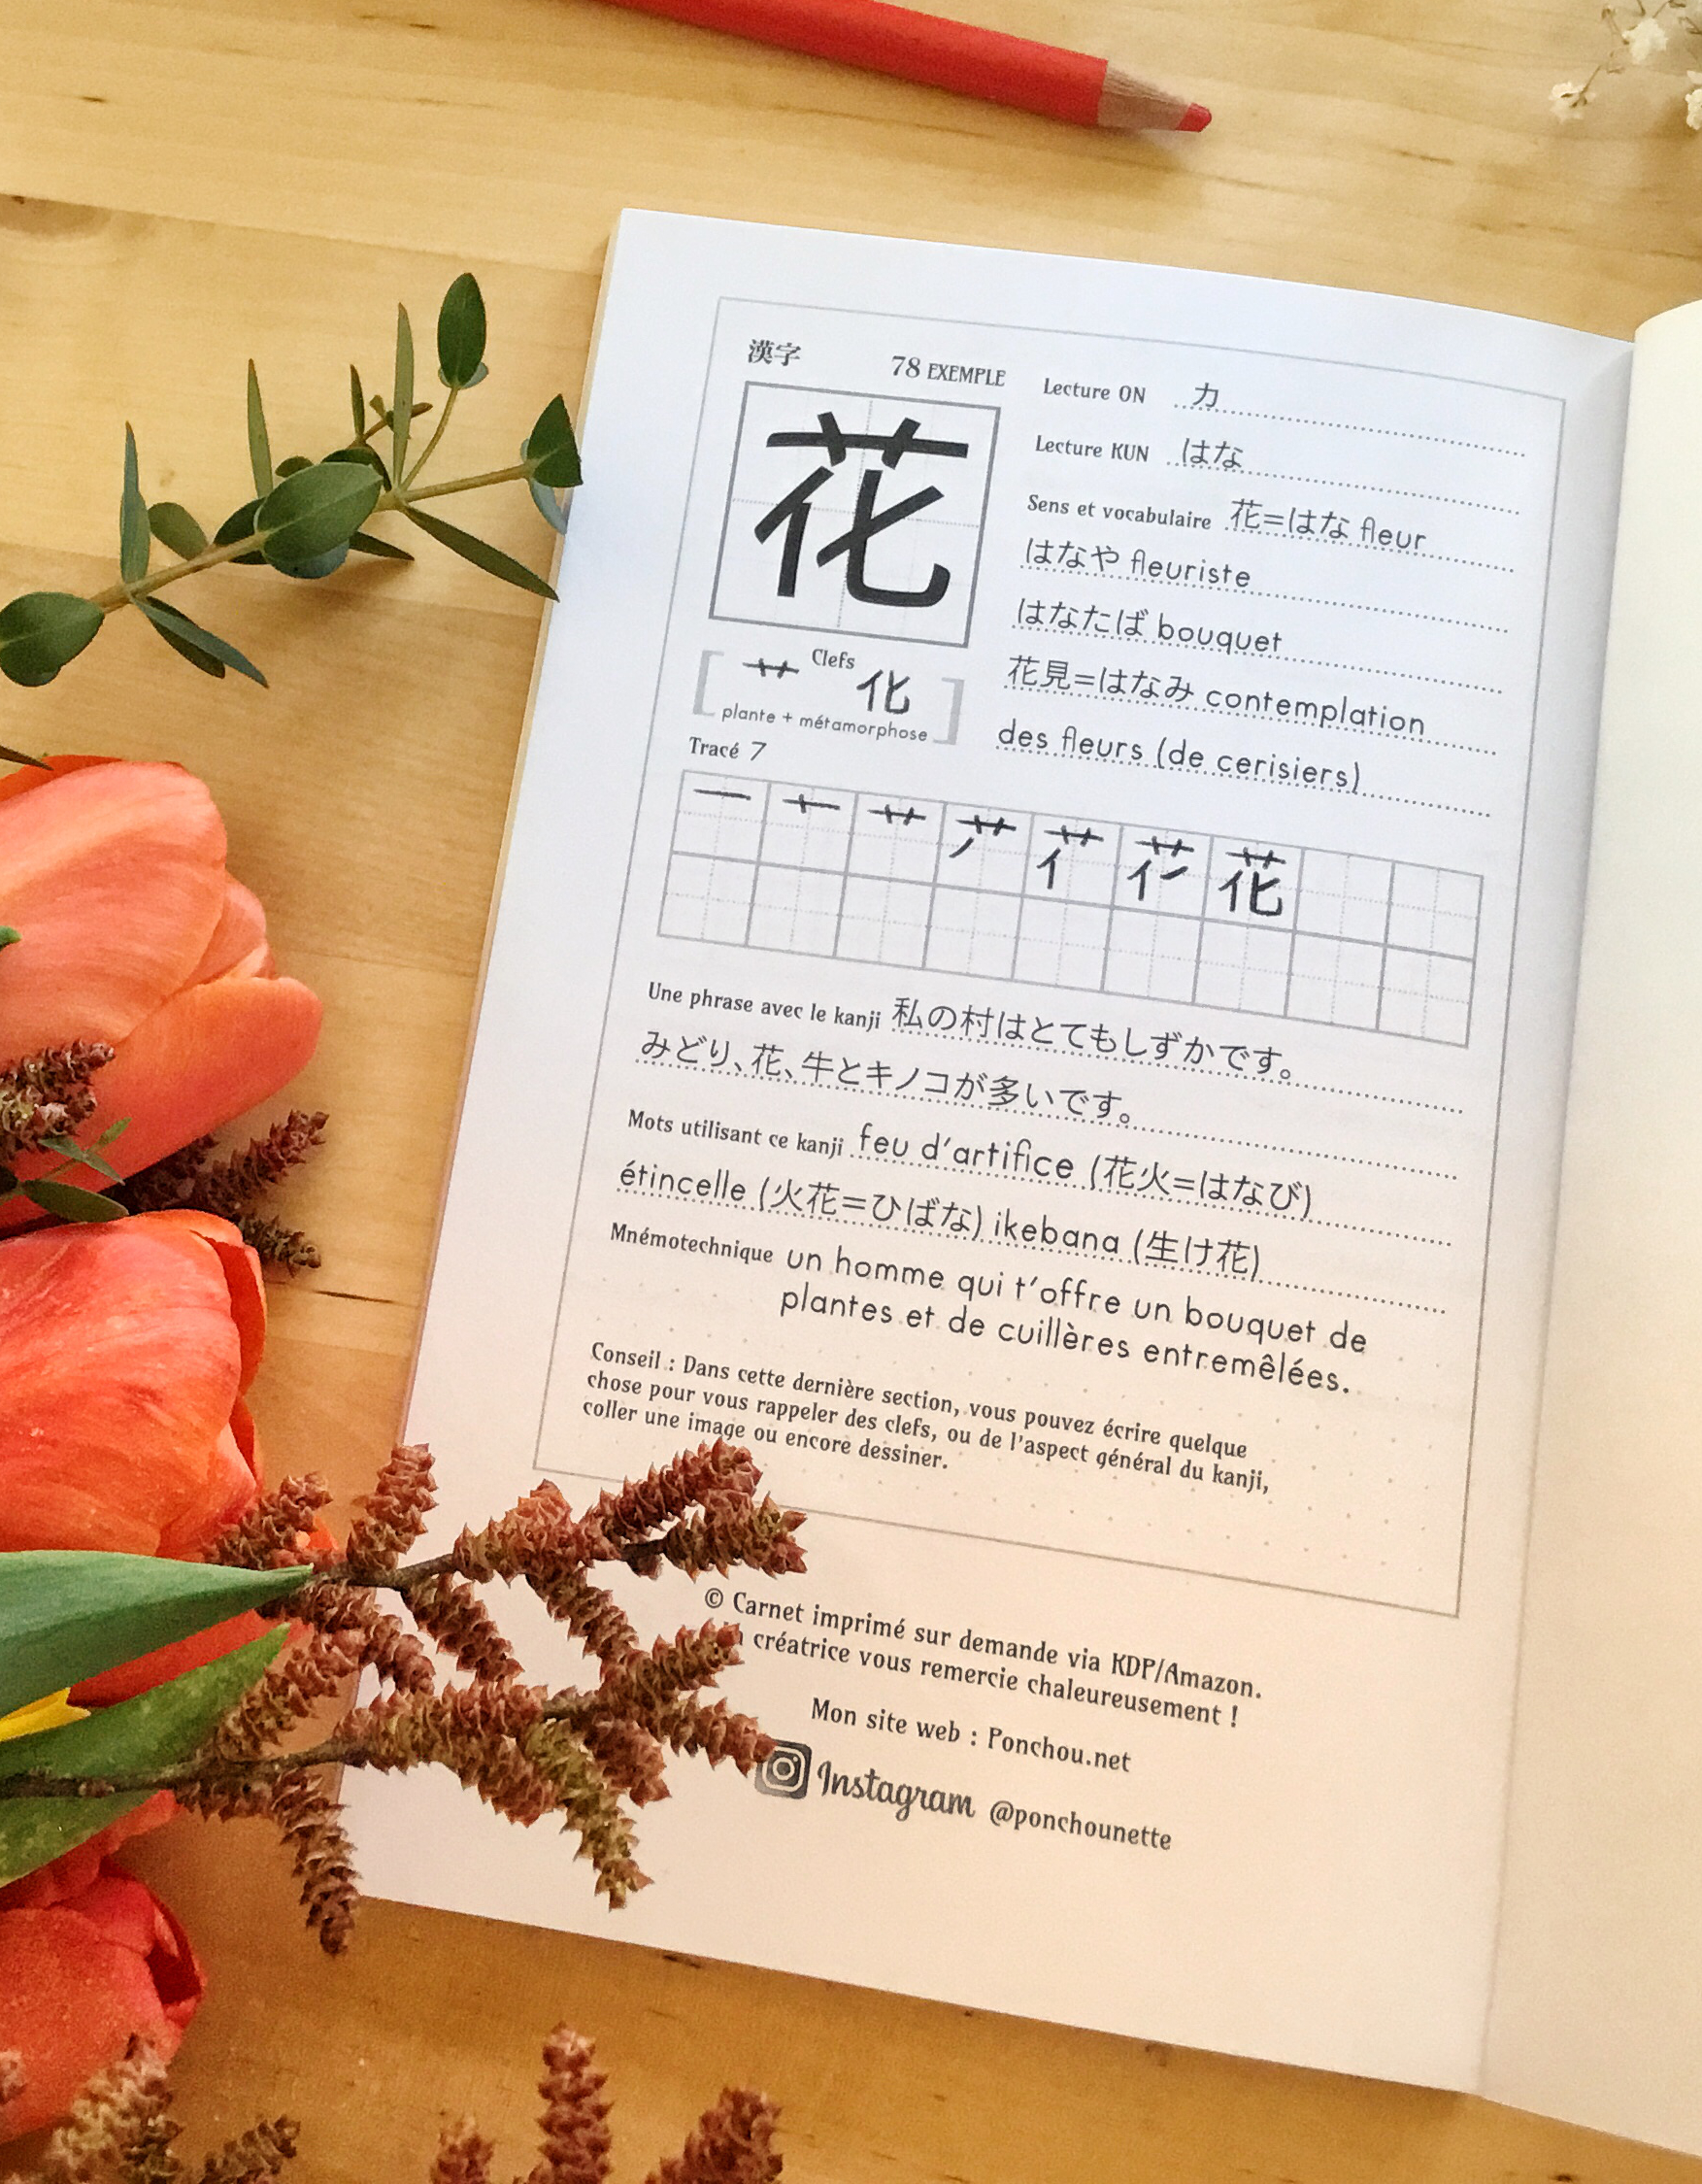 漢字
78 EXEMPLE
花
Clefs
艹 化
plante + métamorphose
Lecture ON カ
Lecture KUN はな
Sens et vocabulaire 花=はな fleur
はなや fleuriste
はなたば bouquet
花見=はなみ contemplation
des fleurs (de cerisiers)
Tracé 7
一 艹 花
Une phrase avec le kanji 私の村はとてもしずかです。
みどり、花、牛とキノコが多いです。
Mots utilisant ce kanji feu d'artifice (花火=はなび)
étincelle (火花=ひばな) ikebana (生け花)
Mnémotechnique un homme qui t'offre un bouquet de
plantes et de cuillères entremêlées.
Conseil : Dans cette dernière section, vous pouvez écrire quelque
chose pour vous rappeler des clefs, ou de l'aspect général du kanji,
coller une image ou encore dessiner.
© Carnet imprimé sur demande via KDP/Amazon.
créatrice vous remercie chaleureusement !
Mon site web : Ponchou.net
Instagram @ponchounette